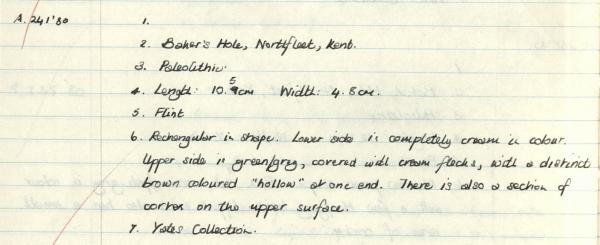 A.241'80 1.
2. Baker's Hole, Northfleet, Kent.
3. Paleolithic.
4. Length: 10.5cm Width: 4.8cm.
5. Flint
6. Rectangular in shape. Lower side is completely cream in colour.
Upper side is green/grey, covered with cream flecks, with a distinct
brown coloured "hollow" at one end. There is also a section of
cortex on the upper surface.
7. Yates Collection.